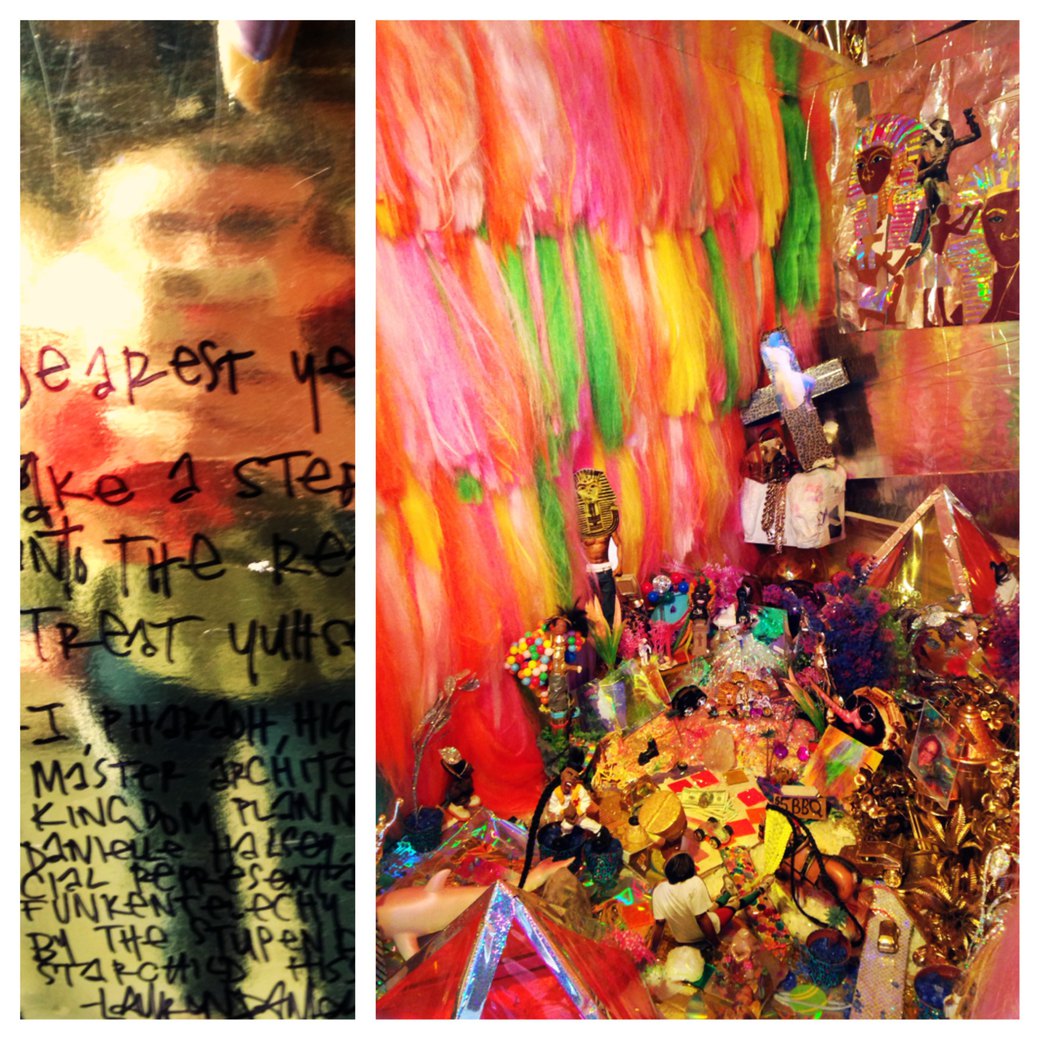 DeaResT ye
ake a STEP
INTo THe Re
TReaT yuHS
-I, PHaRaoH, HIG
MaSTeR aRCHITe
KINGDOM PLANN
DANIeLLe HaLSeY,
CIAL RePReSeNTa
FUNKENTELECHY
BY THe STUPEND
STARCHILD HIS
$5 BBQ